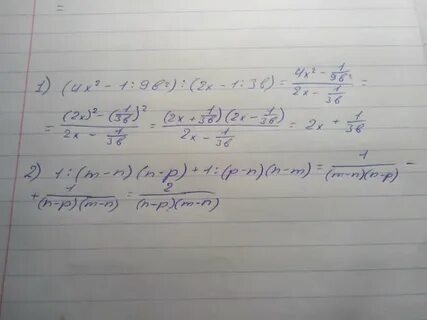 =
1) (4x² - 1 : 9в²) : (2x - 1 : 3в) = (4x² - 1/9в²)/(2x - 1/3в) =
= ((2x)² - (1/3в)²)/(2x - 1/3в) = ((2x + 1/3в)(2x - 1/3в))/(2x - 1/3в) = 2x + 1/3в
2) 1 : (m-n)(n-p) + 1 : (p-n)(n-m) = 1/((m-n)(n-p)) -
+ 1/((n-p)(m-n)) = 2/((n-p)(m-n))